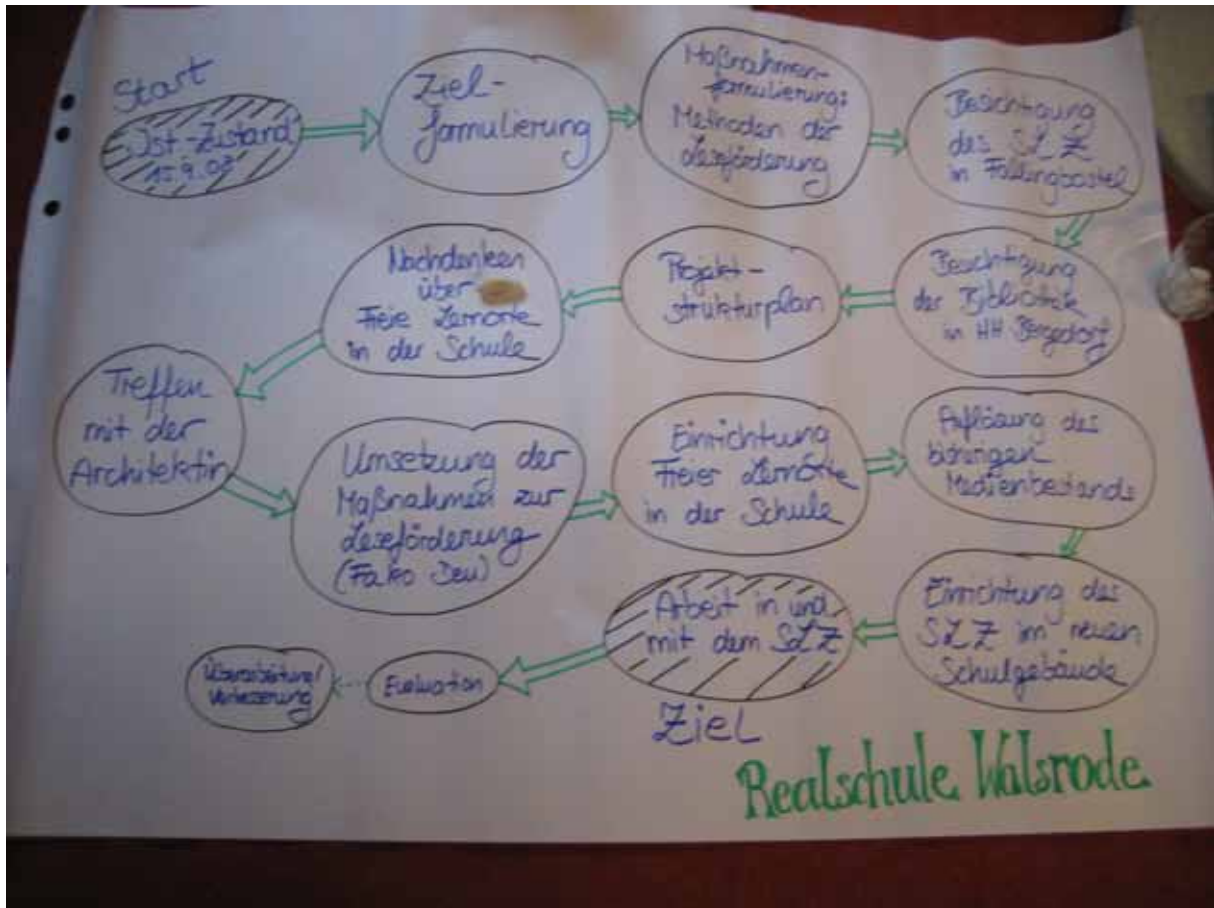 Start
Ist-Zustand
Ziel-
formulierung
Maßnahmen-
formulierung:
Methoden der
Leseförderung
Besichtigung
des SLZ
in Fallingbostel
Besichtigung
der Bibliotek
in HH Bergedorf
Projekt-
strukturplan
Nachdenken
über
Freie Lernorte
in der Schule
Treffen
mit der
Architektin
Umsetzung der
Maßnahmen zur
Leseförderung
(Fako Deu)
Einrichtung
Freier Lernorte
in der Schule
Auflösung des
bisherigen
Medienbestands
Einrichtung des
SLZ im neuen
Schulgebäude
Arbeit in und
mit dem SLZ
Ziel
Evaluation
Überarbeitung/
Verbesserung
Realschule Walsrode